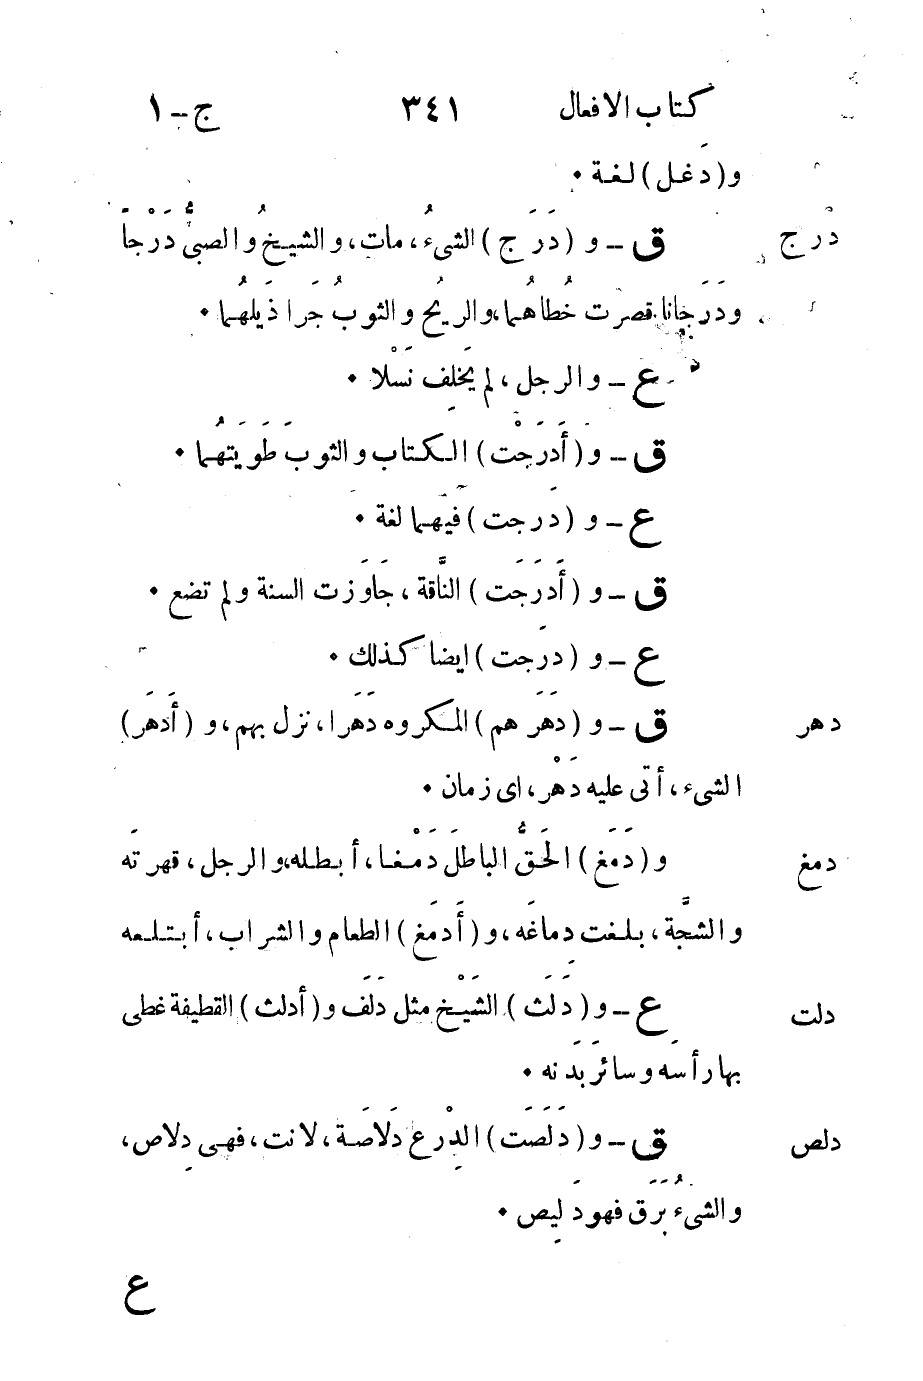 كتاب الافعال ٣٤١ ج – ١
و (دَغل) لغة •
درج ق – و (دَرَج) الشىُء، مات، والشيخُ والصبىُّ دَرْجاً
ودَرَجانا قصرت خُطاهُما، والريحُ والثوبُ جَرا ذَيلهُما •
ع – والرجل، لم يَخلِف نَسْلا •
ق – و (أَدرَجْت) الكتاب والثوبَ طَوَيتهُما •
ع – و (دَرجت) فيهما لغة •
ق – و (أَدرَجَت) النَّاقة، جَاوَزت السنة ولم تضع •
ع – و (درَجت) ايضا كذلك •
دهر ق – و (دَهَر هم) المكروه دَهَرا، نزل بهم، و (أَدهَر)
الشىء، أتى عليه دَهْر، اى زمان •
دمغ و (دَمَغ) الحَقُّ الباطلَ دَمْغا، أبطله، والرجل، قهرته
والشجَّة، بلغت دِماغَه، و (أَدمَغ) الطعام والشراب، أبتلعه
دلث ع – و (دَلَث) الشَيْخ مثل دَلَف و (أدلث) القطيفة غطى
بها رأسَه وسائرَ بَدَنه •
دلص ق – و (دَلَصَت) الدِرْع دَلَاصَة، لانت، فهى دِلاص،
والشىُء بَرَق فهو دَلِيص •
ع